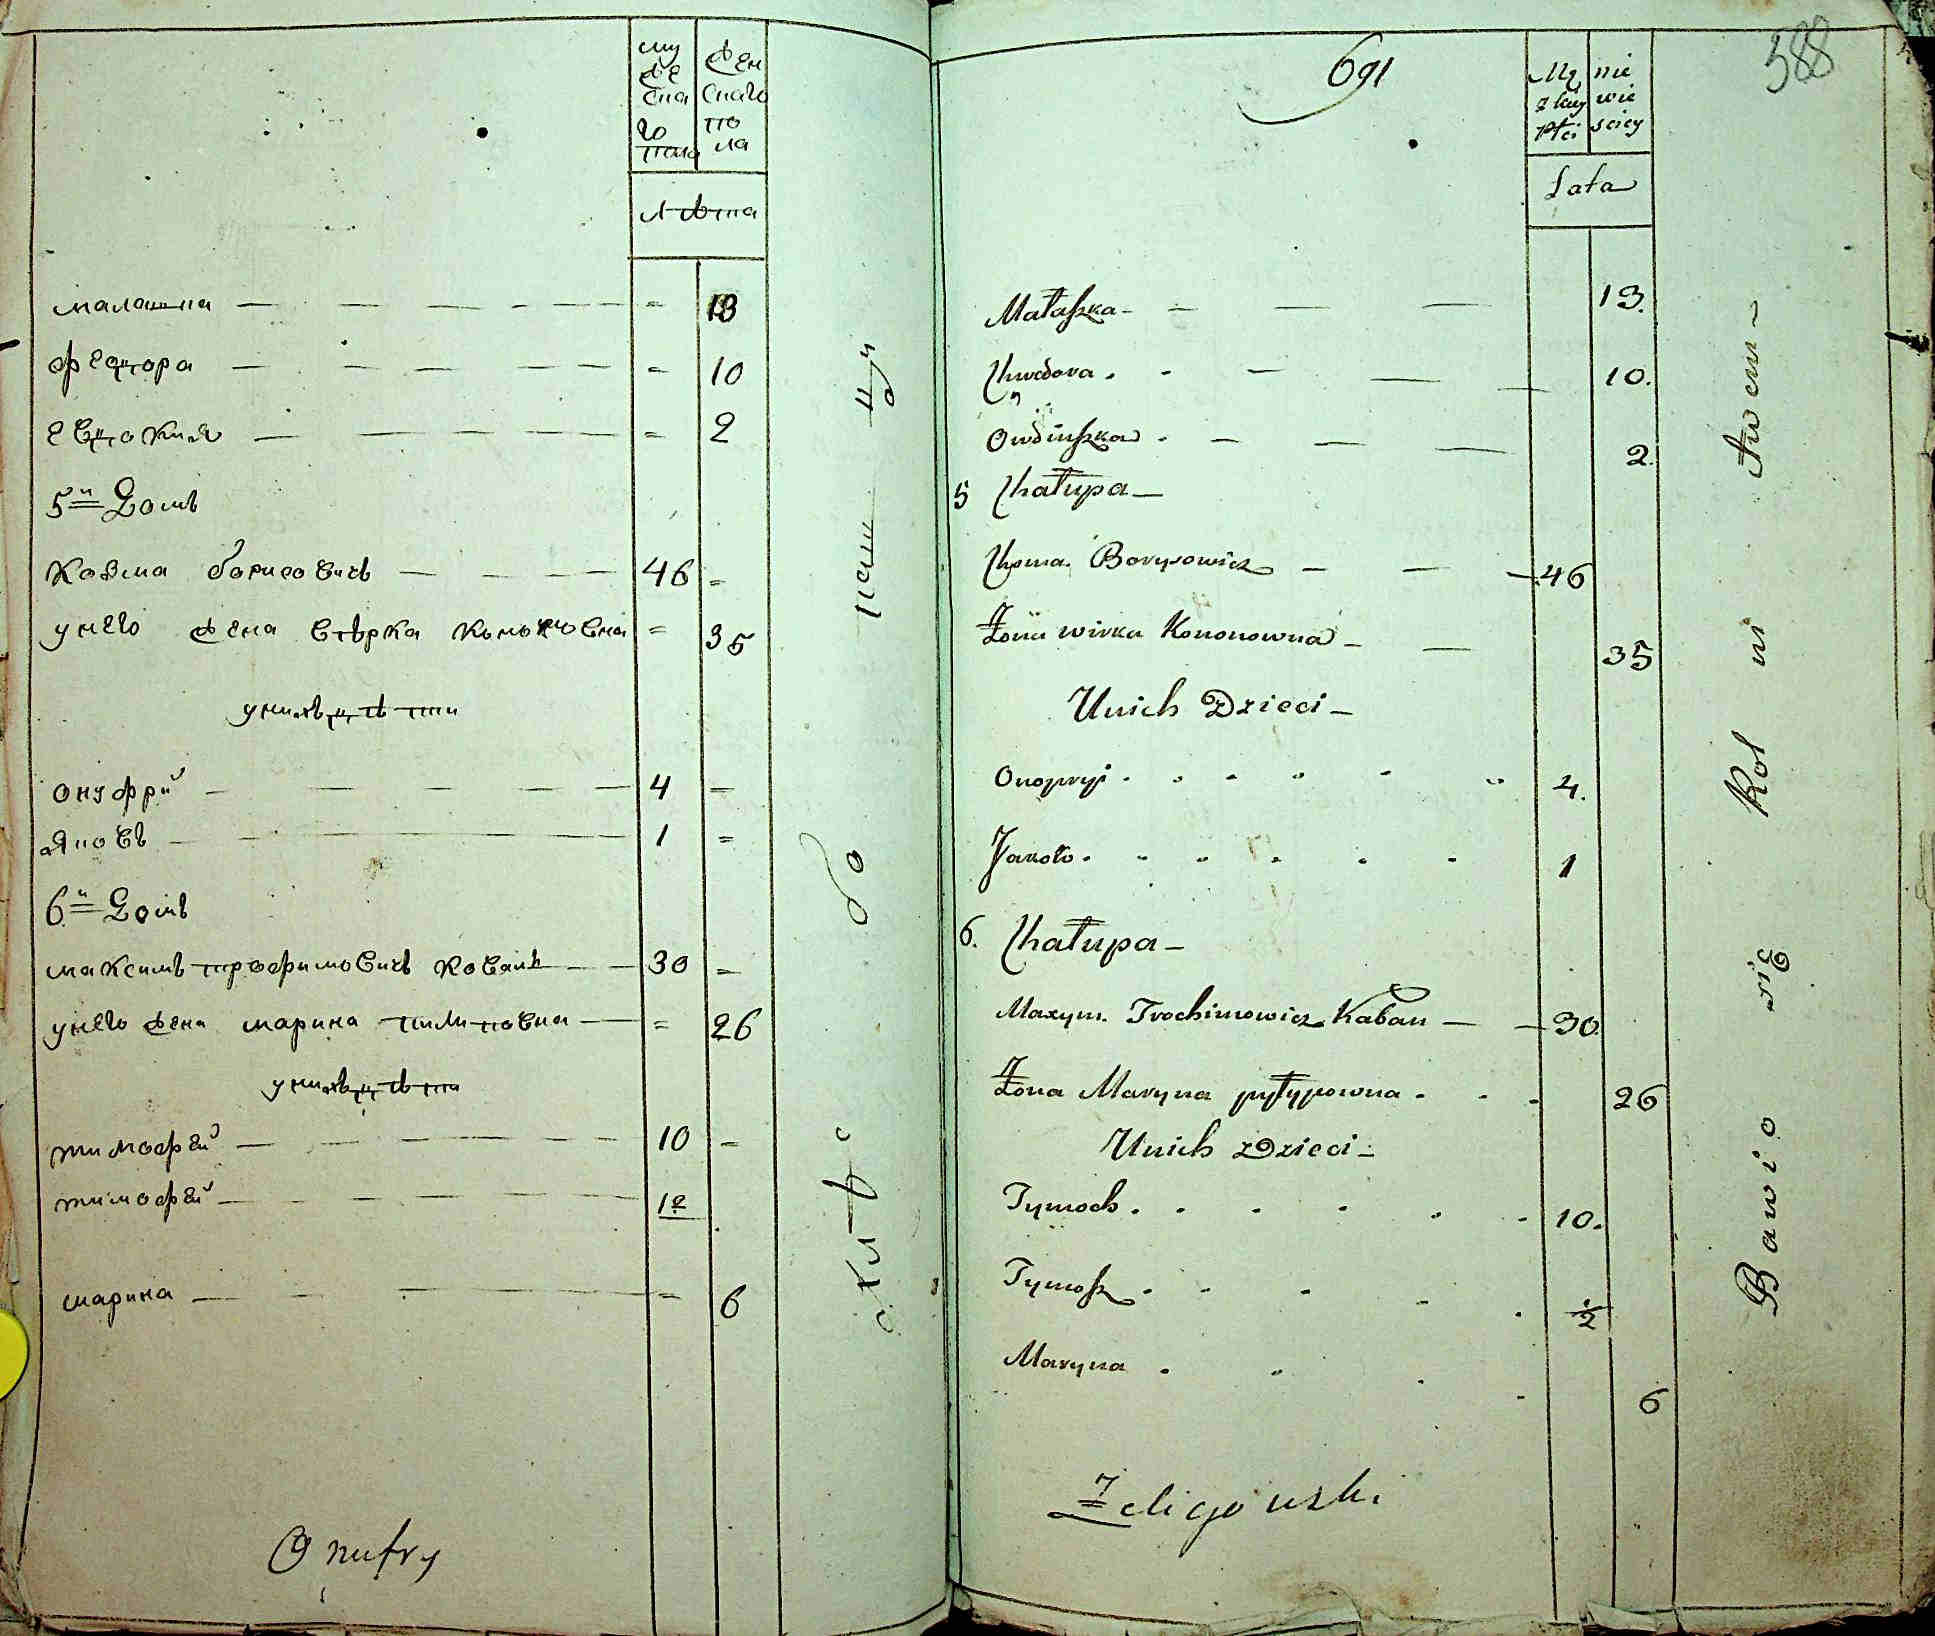 мужескаго пола
женскаго пола
лѣта
малашка — — — — = 13
федора — — — — = 10
евдокия — — — — = 2
5й домъ
козма борисовичъ — — — 46 =
у него жена вѣрка кононовна = 35
у нихъ дѣти
онуфрий — — — — 4 =
яковъ — — — — 1 =
6й домъ
максимъ трофимовичъ кобанъ — 30 =
у него жена марина пилиповна — = 26
у нихъ дѣти
тимофей — — — — 10 =
тимофей — — — — 1/2
марина — — — — = 6
Onufry
хлѣбо паш
691
388
Męzkiy Płci
niewiesciey
Lata
Małaszka - — — — 13.
Chwedora - - — — 10.
Owdiuszka - — — — 2.
5 Chałupa —
Choma Borysowicz — — — 46
Żona wirka Kononowna — — 35
U nich Dzieci —
Onopryi - - - - 4.
Jakow - - - - 1
6. Chałupa —
Maxym Trochimowicz Kaban — — 30
Żona Maryna pyłypowna - - - 26
U nich Dzieci —
Tymoch - - - - 10.
Tymosz - - - - 1/2
Maryna - - - - 6
Żeligowski
Bawio się Rol